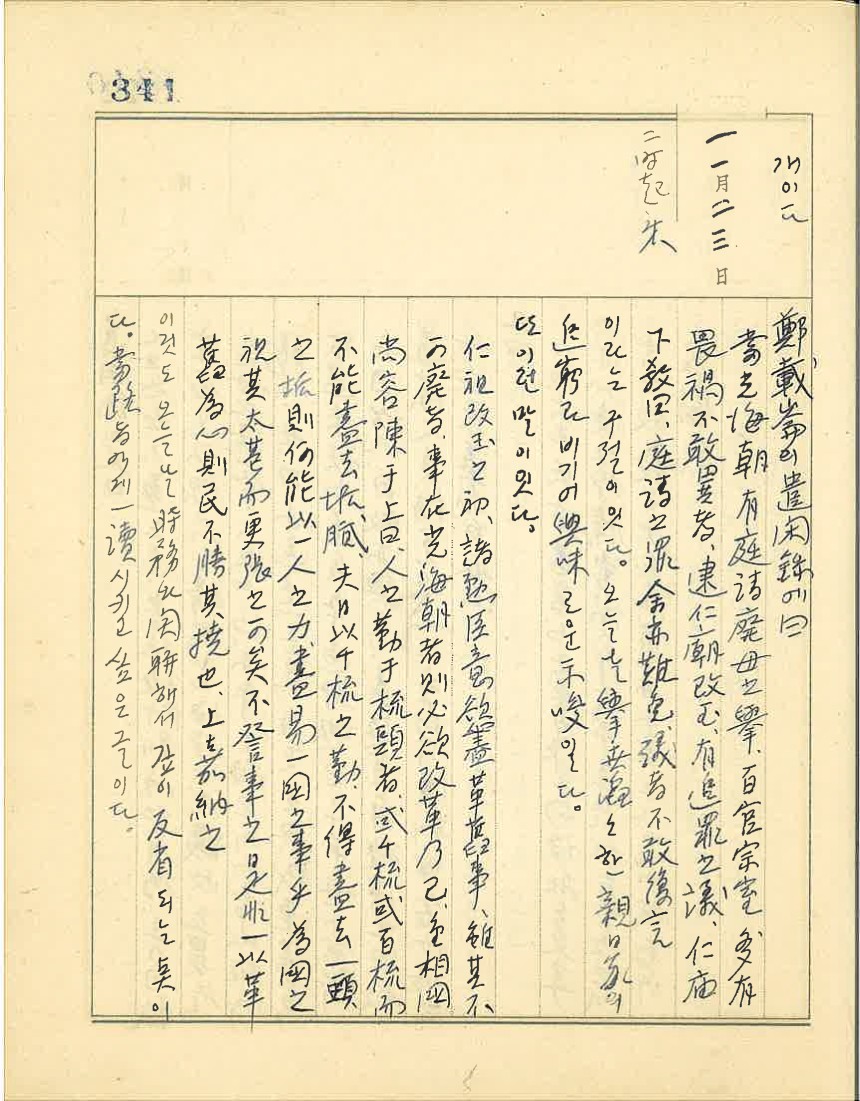 341
개이다
一一月二三日
二時起床
鄭載崙의 遣閑錄에 曰
當光海朝有庭請廢母之擧、百官宗室多有
畏禍不敢異者、逮仁廟改玉、有追罪之議、仁廟
下敎曰、庭請之罪余亦難免議者不敢復言
이라는 구절이 잇다。오늘날 擧世滔々한 親日家의
追窮과 비기여 興味로운 示唆일다。
또 이런 말이 잇다。
仁祖改玉之初、諸勳臣意欲盡革舊事、雖其不
可廢者、事在光海朝者則必欲改革乃已、金相國
尙容陳于上曰、人之勤于梳頭者、或千梳或百梳而
不能盡去垢膩、夫日以千梳之勤、不得盡去一頭
之垢則何能以一人之力、盡易一國之事乎為國之
視其太甚而更張之可矣不
舊為心則民不勝其撓也、上嘉納之
이것도 오늘날 時務와 関聯해서 깊이 反省되는 点이
다。當路者에게 一讀 시키고 싶은 글이다。